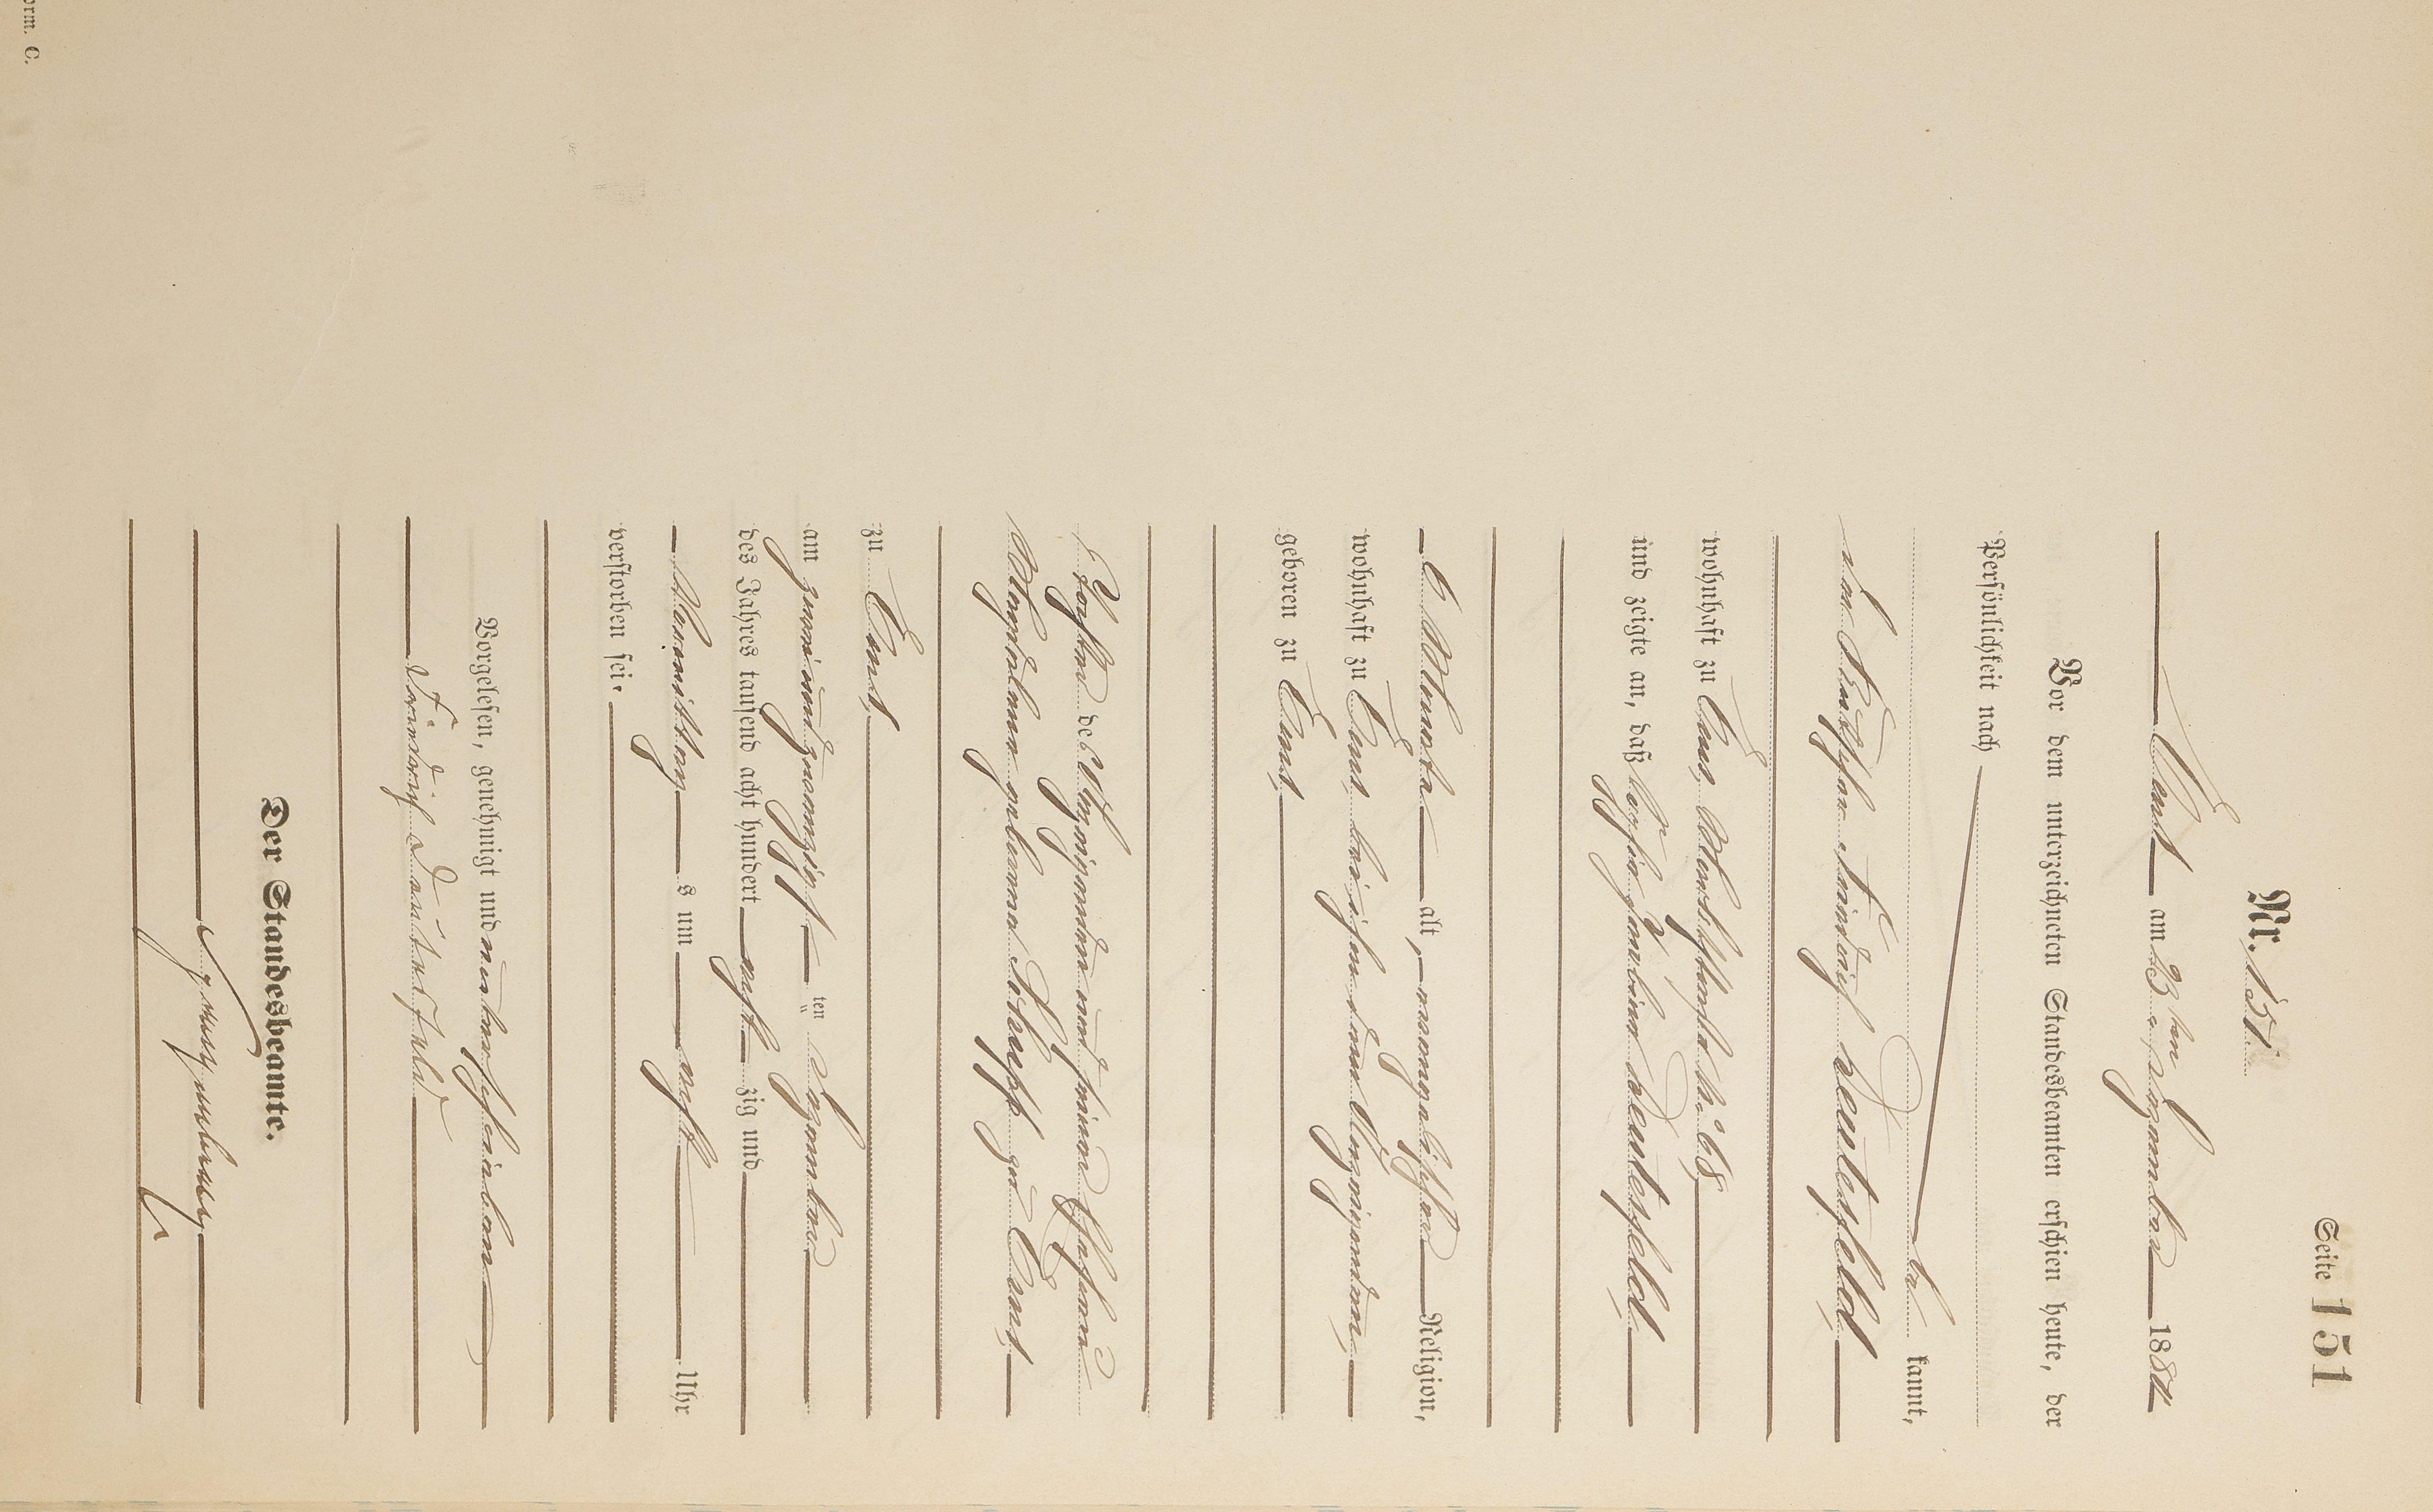 Seite 151
Nr. 151.
Ems am 23ten September 1884
Vor dem unterzeichneten Standesbeamten erschien heute, der
Persönlichkeit nach
be kannt,
der Friedrich Deutesfeld,
wohnhaft zu Ems, No 68,
und zeigte an, daß Deutesfeld,
6 Monate alt, evangelischer Religion,
wohnhaft zu Ems bei dem Anzeigenden,
geboren zu Ems,
Tochter des Anzeigenden und seiner Ehefrau
Magdalena geborene zu Ems,
zu Ems,
am zwei und zwanzigsten ten September
des Jahres tausend acht hundert acht zig und
Vormittag s um acht Uhr
verstorben sei.
Vorgelesen, genehmigt und unterschrieben
Friedrich Deutesfeld
Der Standesbeamte.
orm. C.